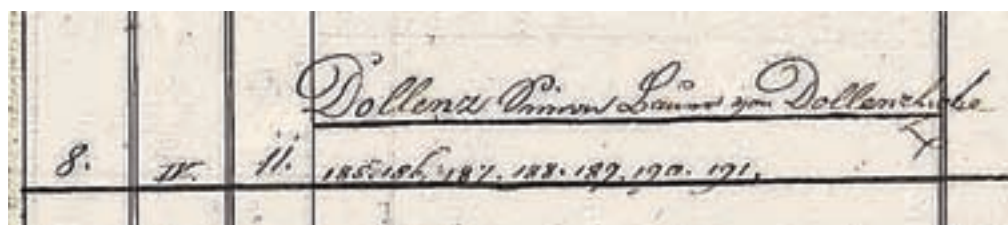 Dollenz Simon Bauer zu Dollenchiche
8. IV. 11. 185. 186. 187. 188. 189. 190. 191.